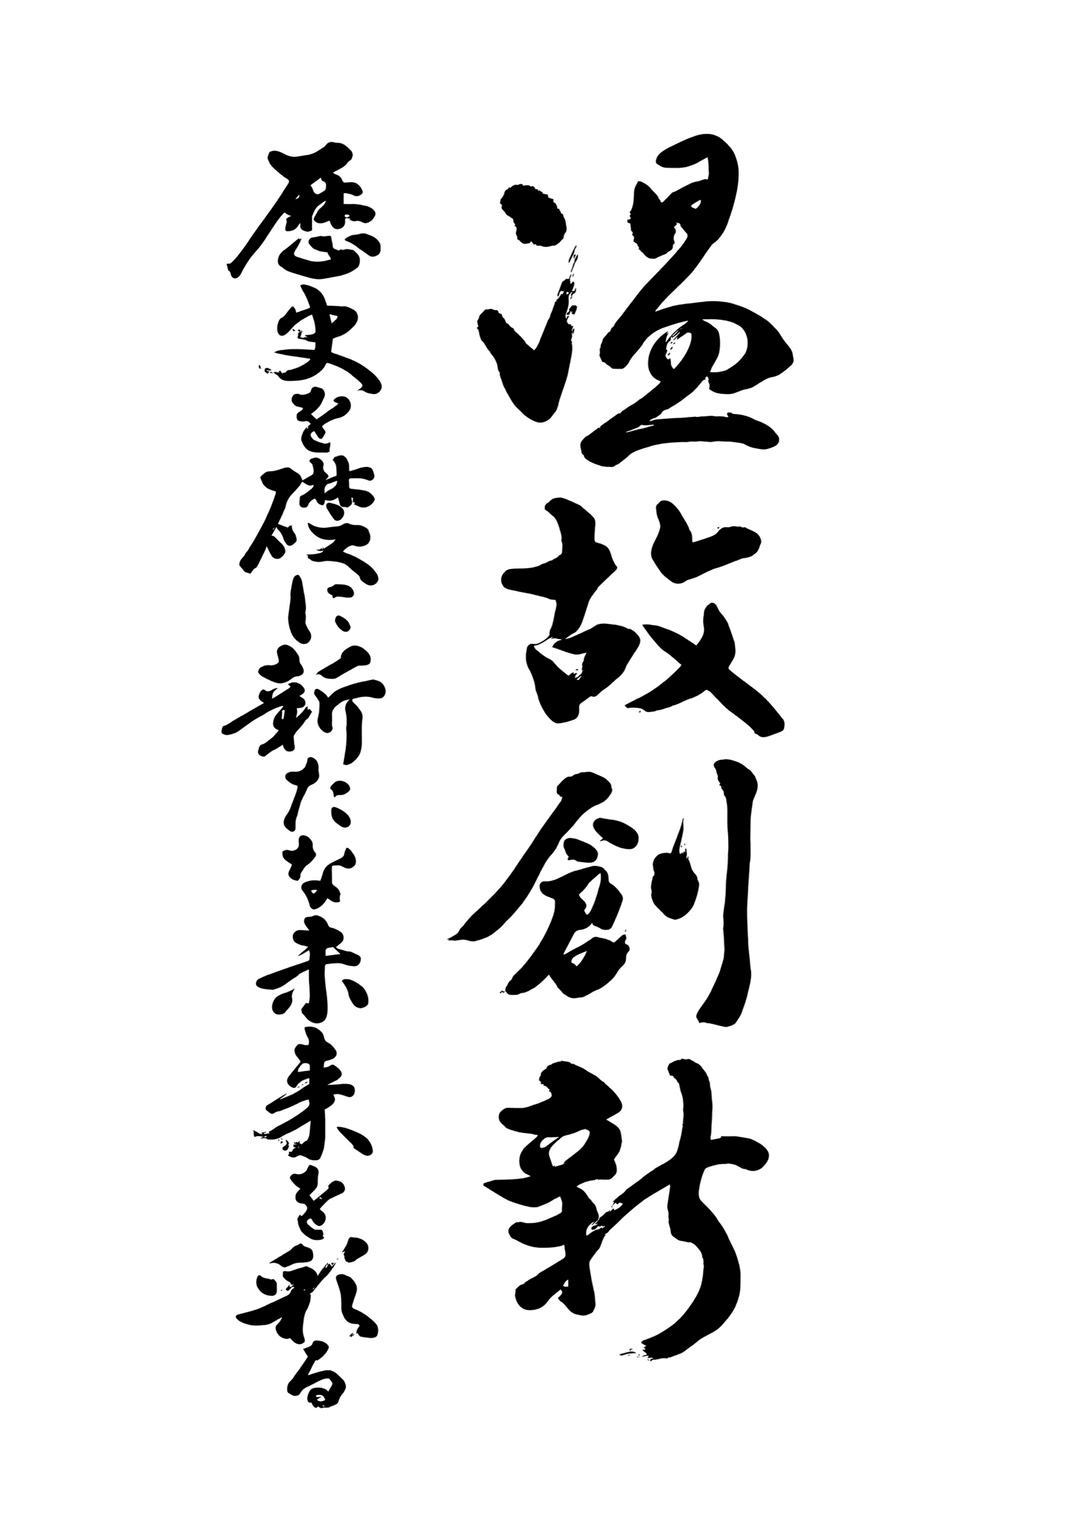 温故創新
歴史を礎に新たな未来を彩る